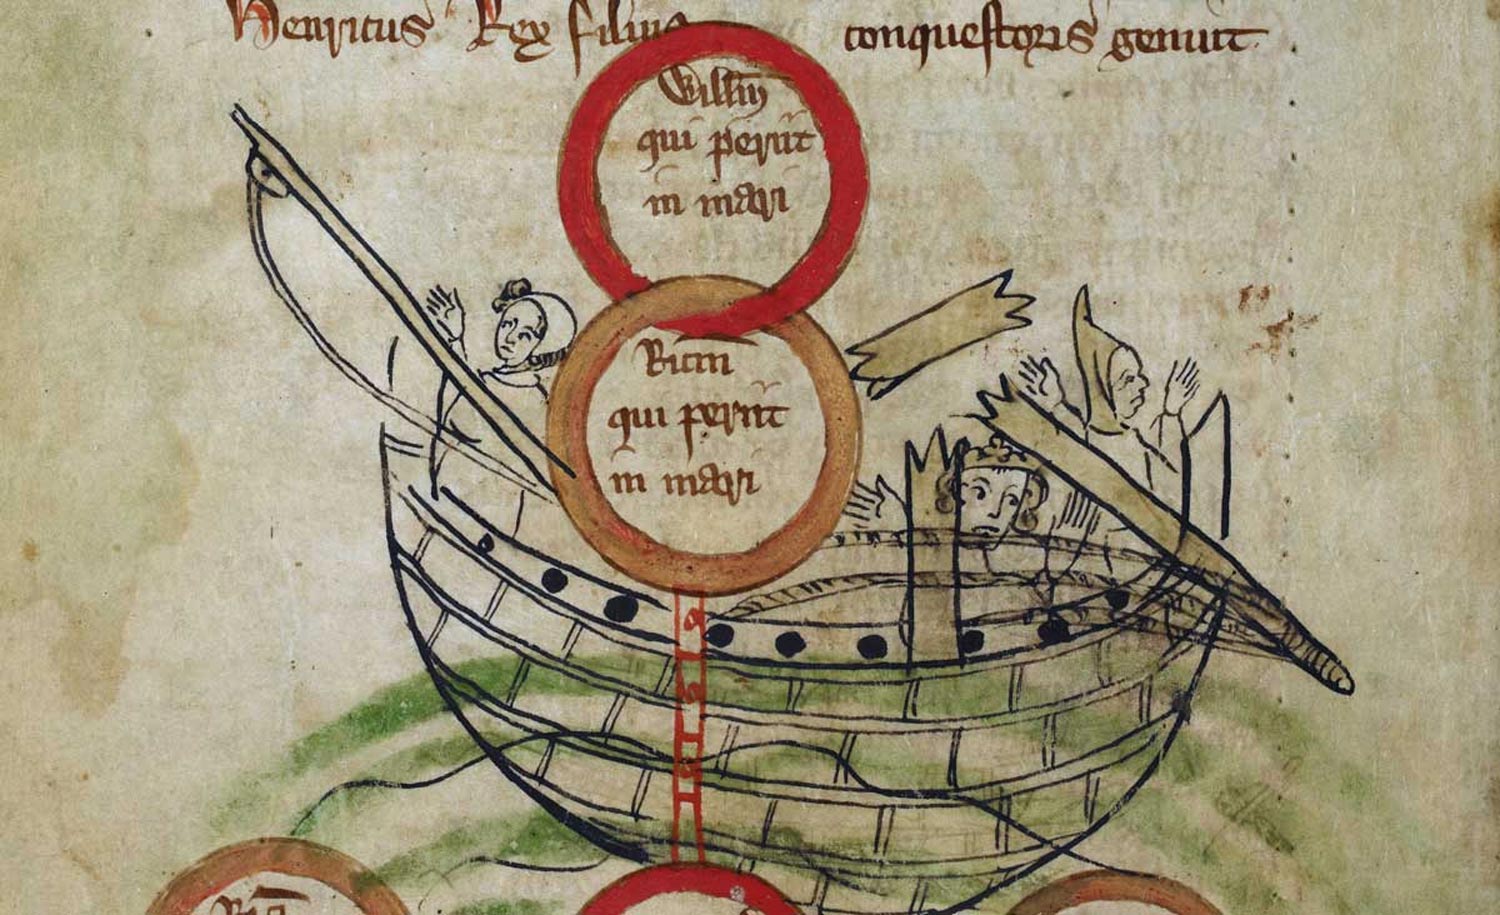 Henricus Rex filius conquestoris genuit
Willm̄
qui periit
in mari
Ricm
qui periit
in mari